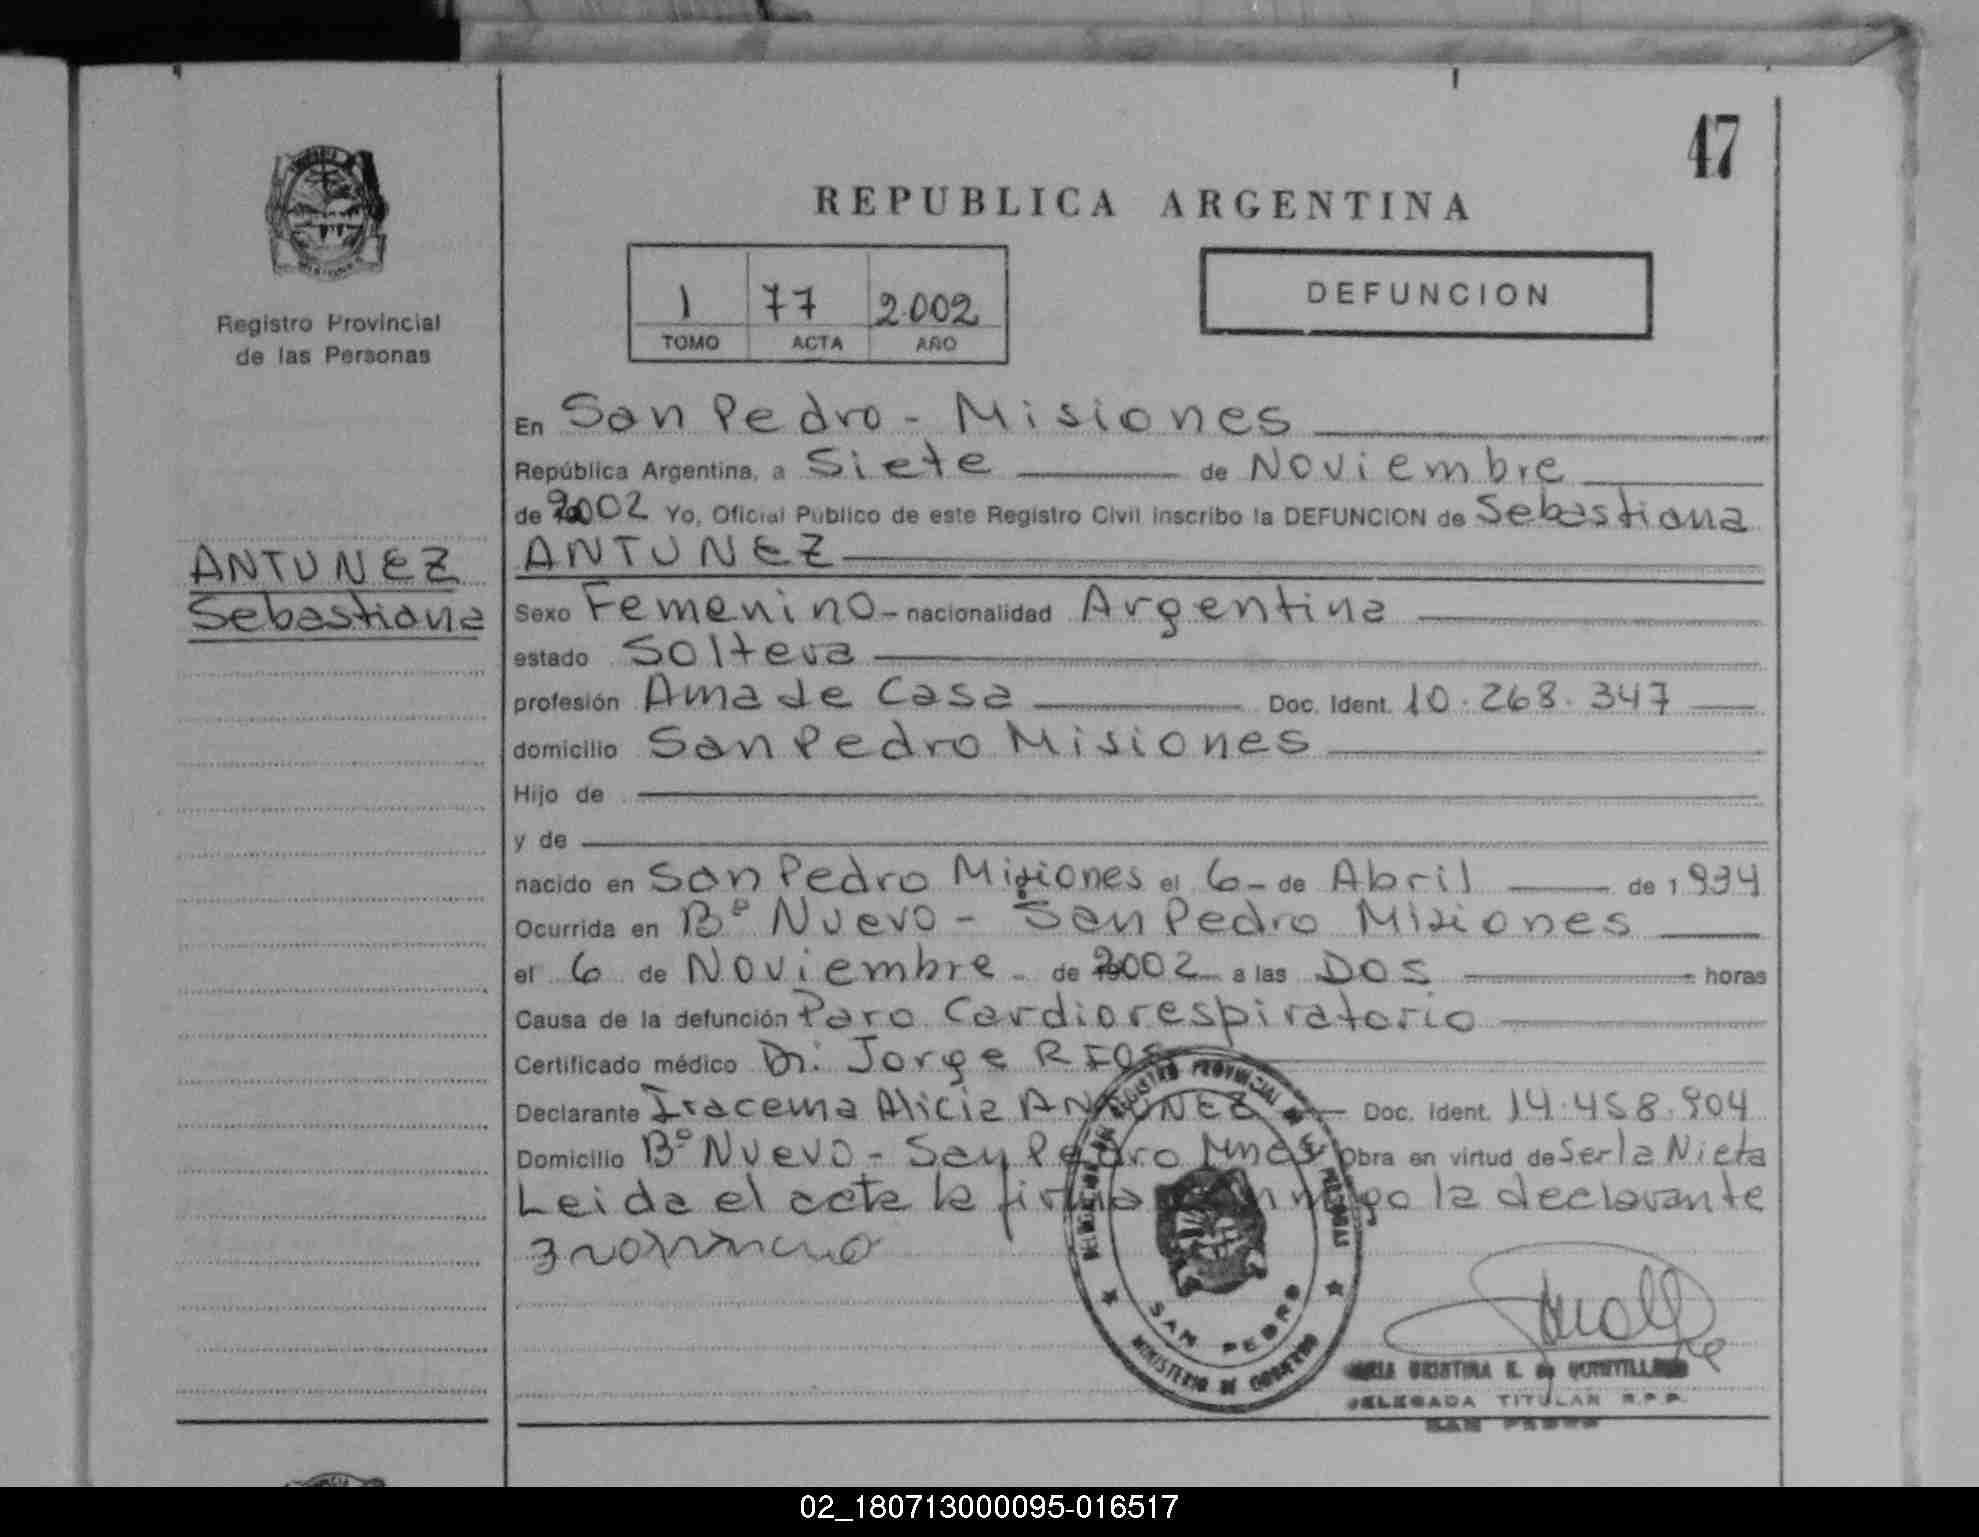 47
REPUBLICA ARGENTINA
1 77 2.002
TOMO ACTA AÑO
DEFUNCION
Registro Provincial
de las Personas
En San Pedro - Misiones
República Argentina, a Siete de Noviembre
de 2002 Yo, Oficial Público de este Registro Civil inscribo la DEFUNCION de Sebastiana
ANTUNEZ
ANTUNEZ
Sebastiana
Sexo Femenino - nacionalidad Argentina
estado Soltera
profesión Ama de Casa Doc. Ident. 10.268.347
domicilio San Pedro Misiones
Hijo de
y de
nacido en San Pedro Misiones el 6 - de Abril de 1934
Ocurrida en Bº Nuevo - San Pedro Misiones
el 6 de Noviembre - de 2002 a las Dos horas
Causa de la defunción Paro Cardiorespiratorio
Certificado médico Dr. Jorge RIOS
Declarante Iracema Alicia ANTUNEZ Doc. Ident. 14.458.904
Domicilio Bº Nuevo - San Pedro Mnes Obra en virtud de Ser la Nieta
Leida el acta la firma conmigo la declarante
REGISTRO PROVINCIAL DE LAS PERSONAS
SAN PEDRO
MINISTERIO DE GOBIERNO
CRISTINA E. de
DELEGADA TITULAR R.P.P.
SAN PEDRO
02_180713000095-016517